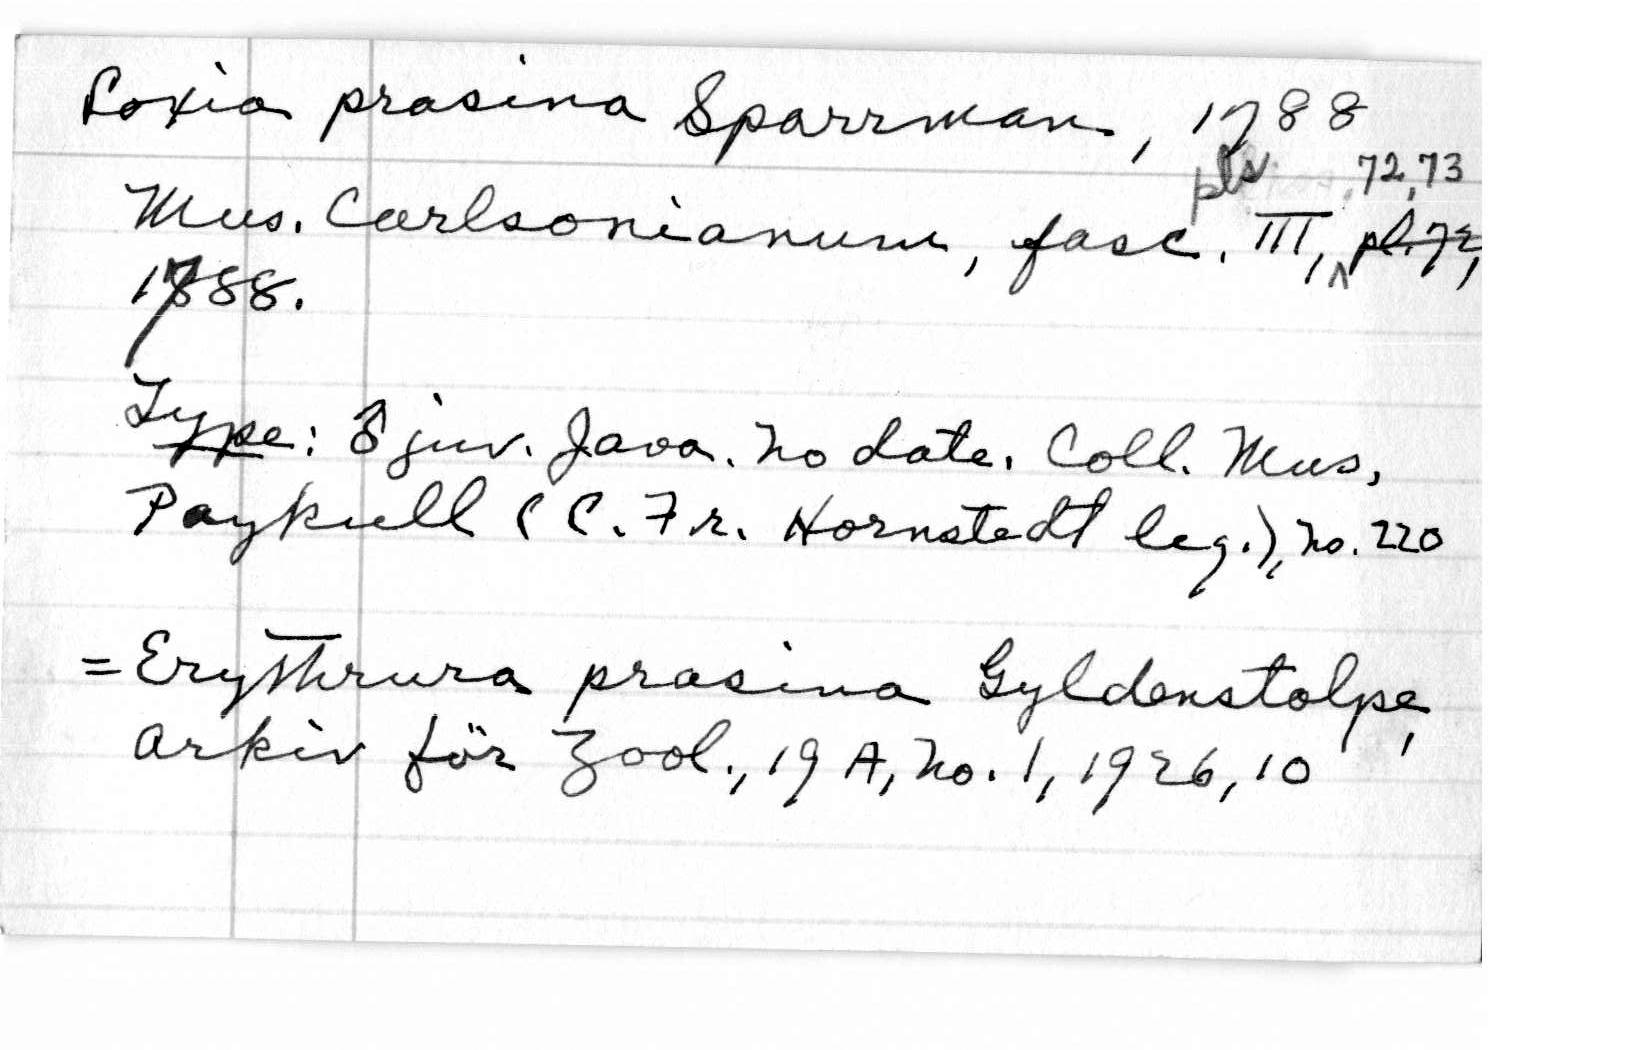 Loxia prasina Sparrman, 1788
pls. 72, 73
Mus. Carlsonianum, fasc. III, pl. 72,
1788.
Type: ♂ juv. Java. No date. Coll. Mus.
Paykull (C. Fr. Hornstedt leg.), no. 220
= Erythrura prasina Gyldenstolpe,
Arkiv för Zool., 19 A, No. 1, 1926, 10